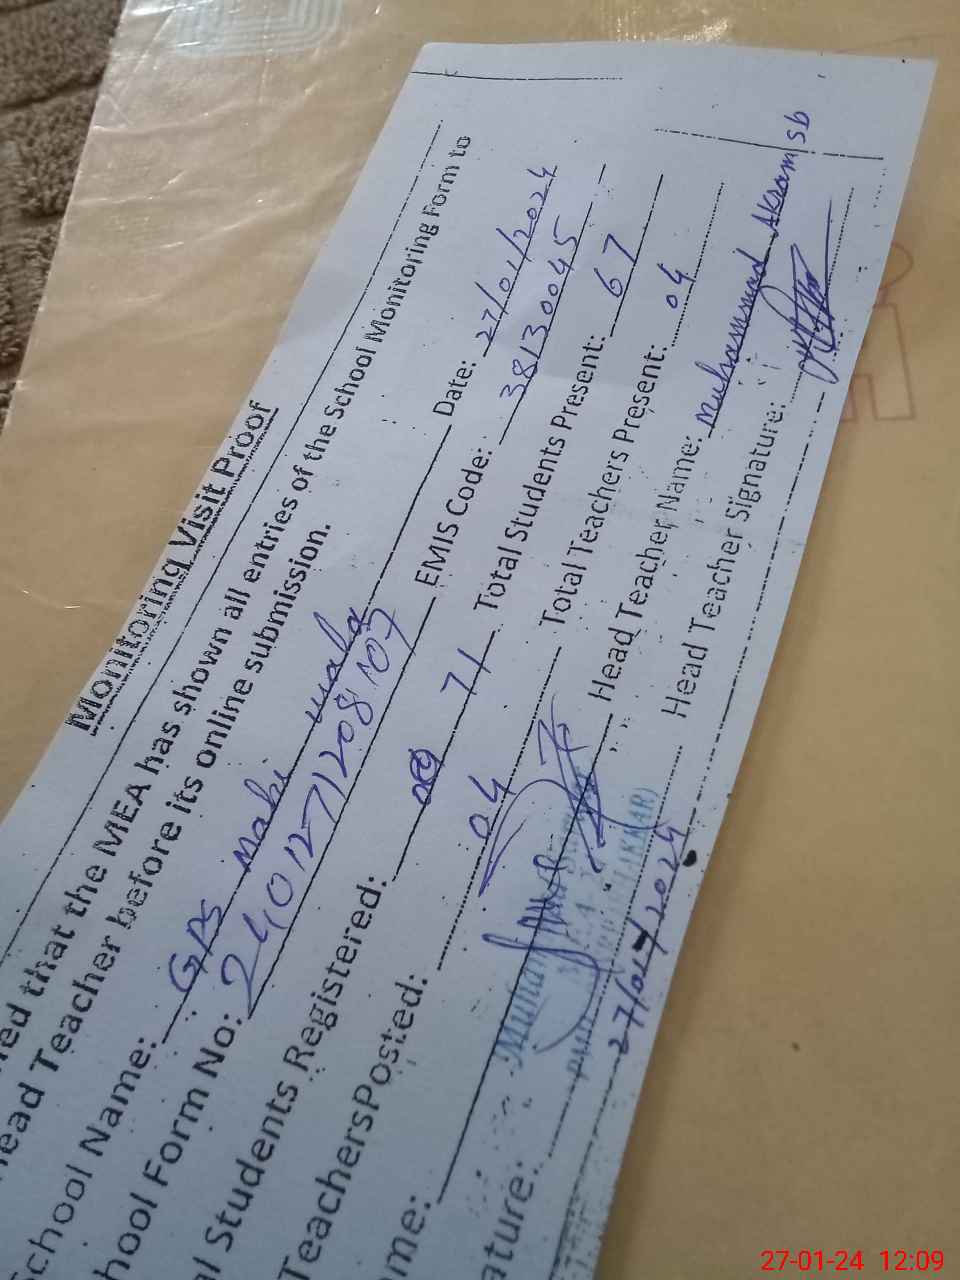 Monitoring Visit Proof
that the MEA has shown all entries of the School Monitoring Form to
ead Teacher before its online submission.
School Name: GPS Maki wala Date: 27/01/2024
hool Form No: EMIS Code: 38130045
al Students Registered: 71 Total Students Present: 67
TeachersPosted: 04 Total Teachers Present: 04
me: Head Teacher Name: Muhammad Akram sb
ature: Head Teacher Signature:
27/01/2024
27-01-24 12:09